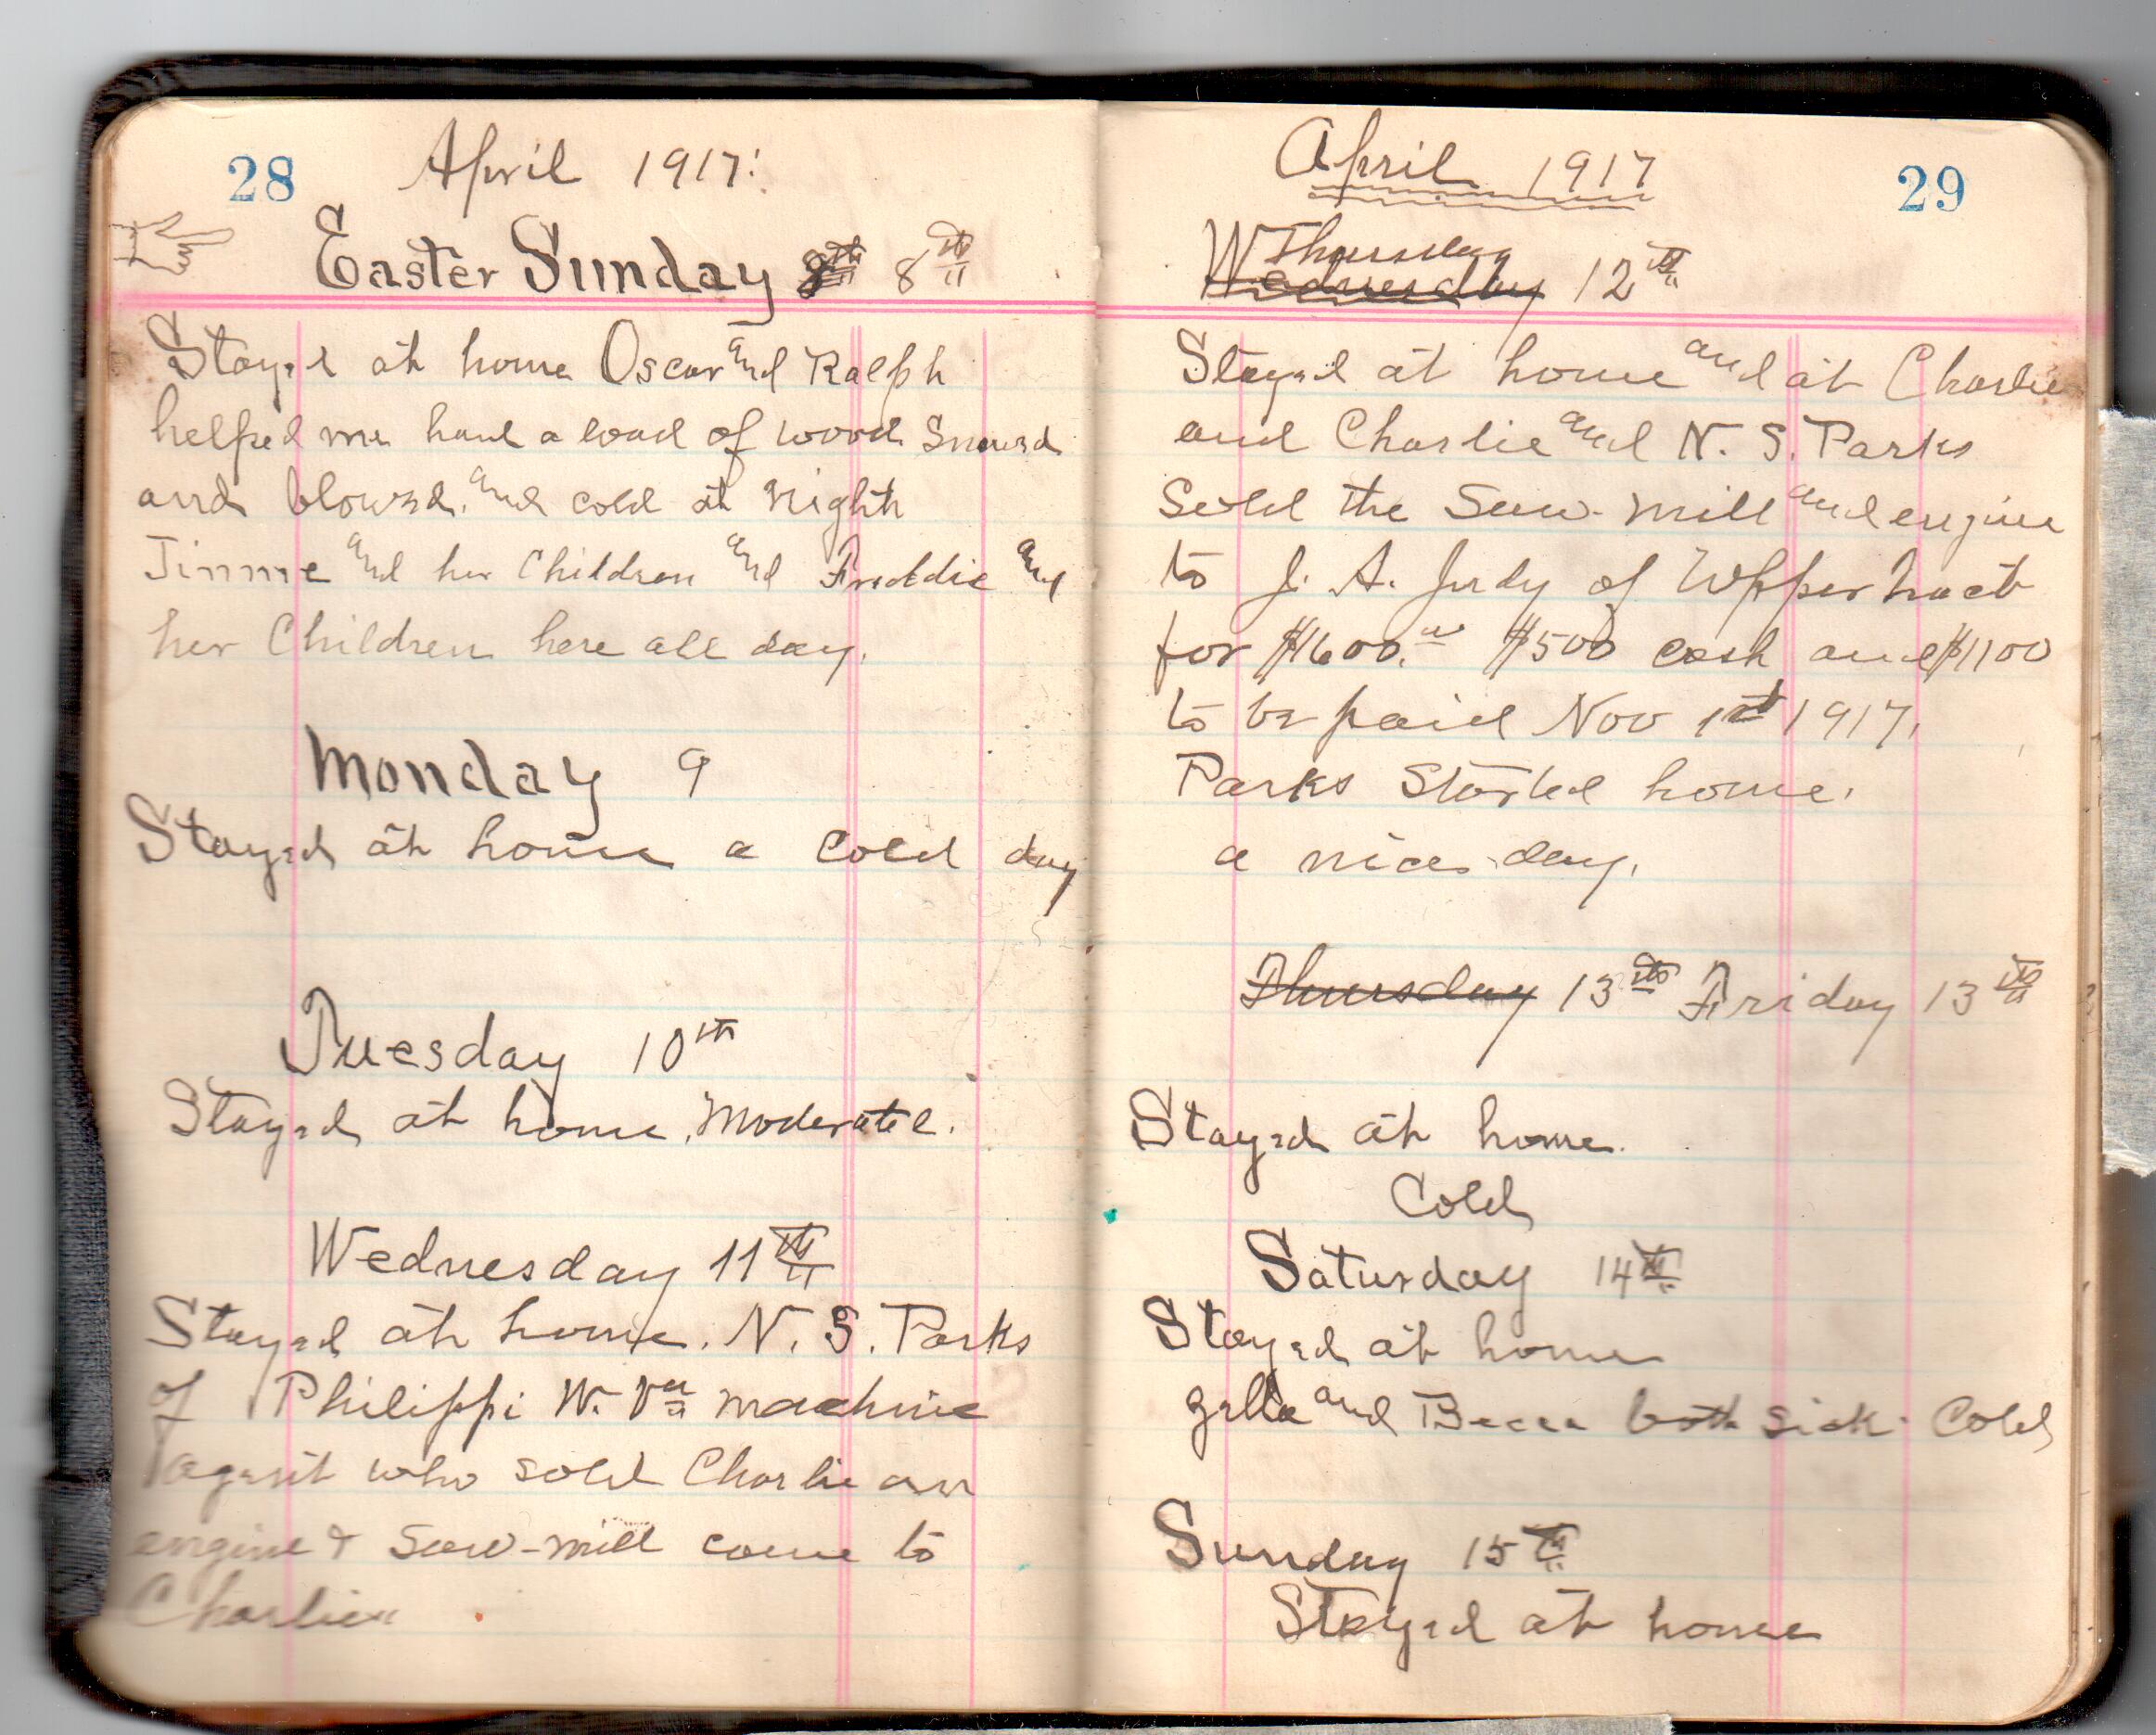 28
April 1917:
Easter Sunday 8th 8th
Stayed at home Oscar and Ralph
helped me haul a load of wood Snowed
and blowed. and cold at night
Jinnie and her Children and Freddie and
her Children here all day.
Monday 9
Stayed at home a cold day
Tuesday 10th
Stayed at home. Moderate.
Wednesday 11th
Stayed at home. N. S. Parks
of Philippi W. Va machine
agent who sold Charlie an
engine & Saw-mill came to
Charlies
April 1917
29
Thursday
Wednesday 12th
Stayed at home and at Charlie
and Charlie and N. S. Parks
Sold the Saw-mill and engine
to J. A. Judy of Upper tract
for $1600.00 $500 cash and $1100
to be paid Nov 1st 1917.
Parks Started home.
a nice day.
Thursday 13th Friday 13th
Stayed at home.
Cold
Saturday 14th
Stayed at home
and both sick. Cold
Sunday 15th
Stayed at home